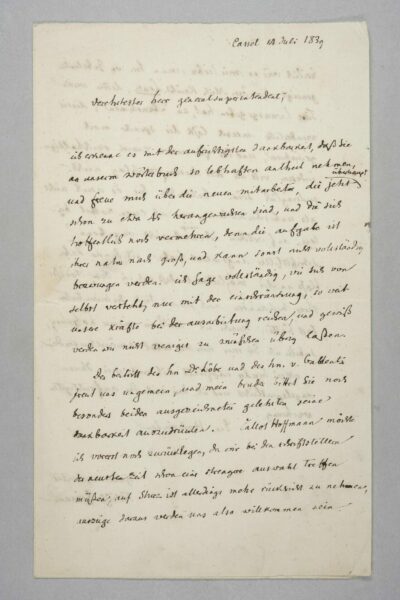 Cassel 14 Juli 1839
Verehrtester herr generalsuperintendent,
ich erkenne es mit der aufrichtigsten dankbarkeit, daß Sie
an unserm wörterbuch so lebhaften antheil nehmen,
und freue mich über die neuen mitarbeiter, die jetzt überhaupt
schon zu etwa 45 herangewachsen sind, und die sich
hoffentlich noch vermehren, denn die aufgabe ist
ihrer natur nach groß, und kann sonst nicht vollständig
bezwungen werden. ich sage vollständig, wie sich von
selbst versteht, nur mit der einschränkung, so weit
unsre kräfte bei der ausarbeitung reichen, und gewiß
werden wir nicht weniges zu wünschen übrig laßen.
Der beitritt des hn und des hn. v.
freut uns ungemein, und mein bruder bittet Sie noch
besonders beiden ausgezeichneten gelehrten seine
dankbarkeit auszudrücken. Hoffmann möchte
ich vorerst noch zurücklegen, da wir bei den schriftstellern
der neusten zeit schon eine strengere auswahl treffen
müßen; auf ist allerdings mehr rücksicht zu nehmen,
auszüge daraus werden uns also willkommen sein